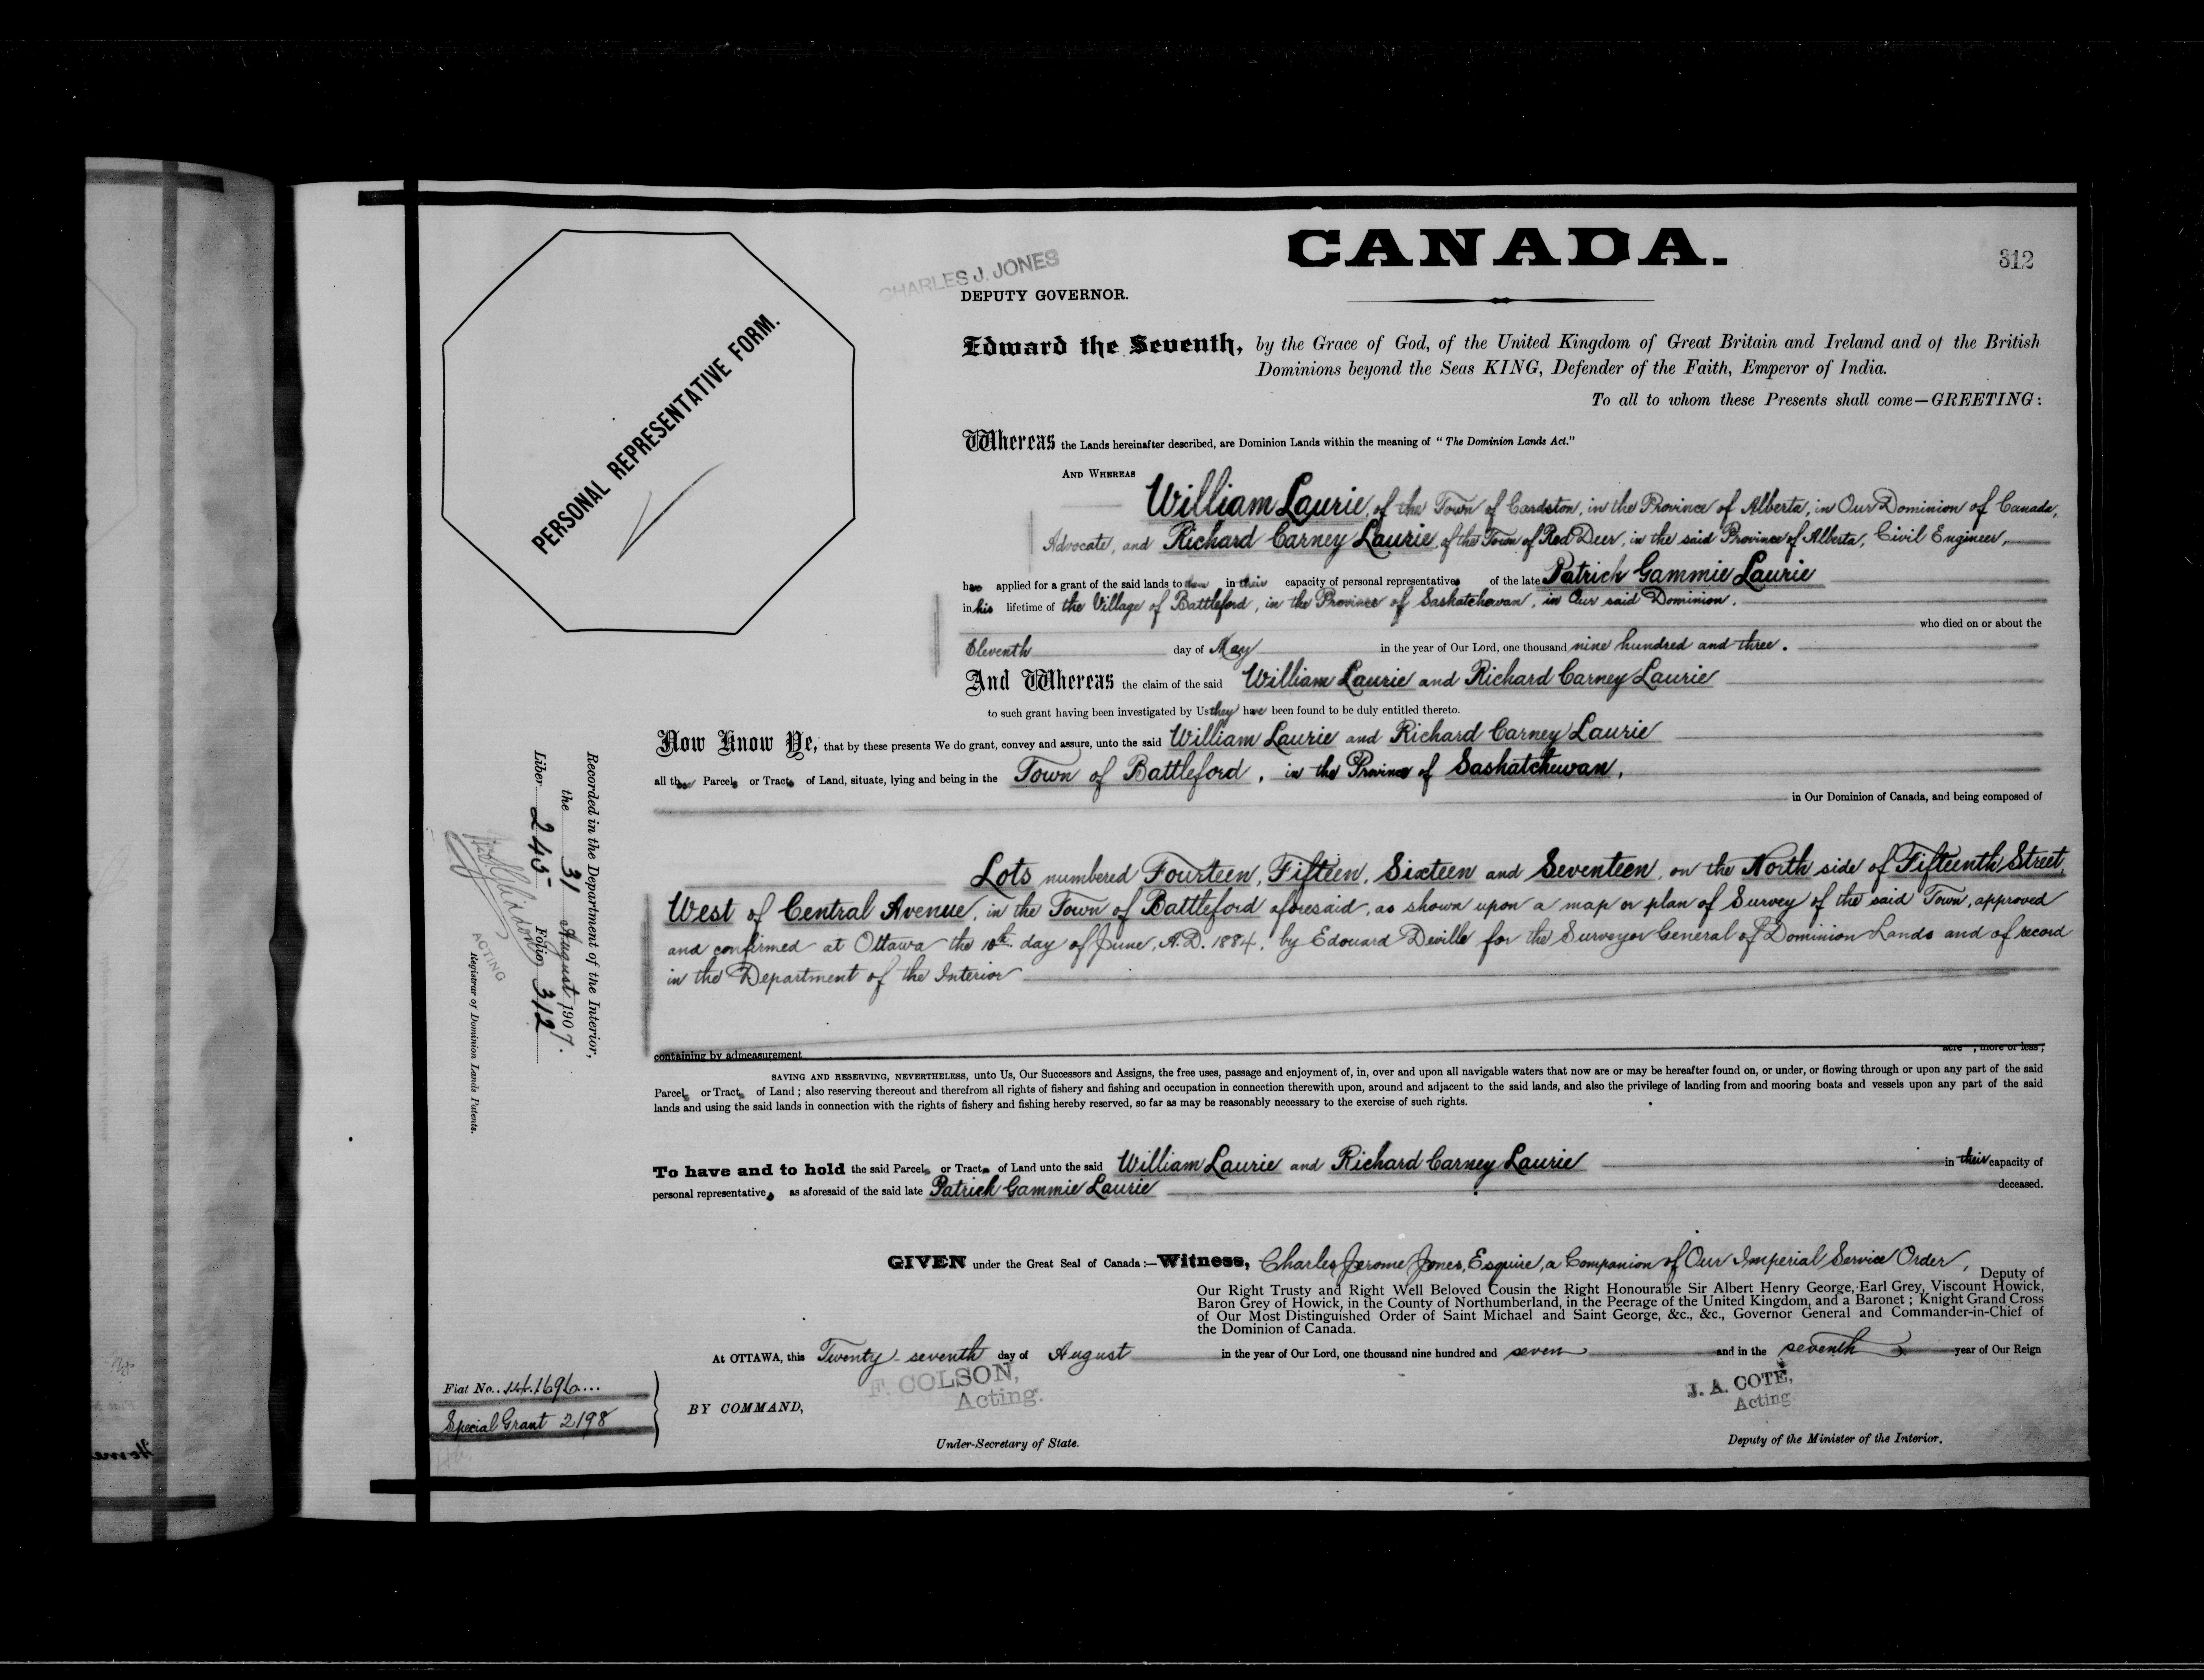 CANADA.
312
CHARLES J. JONES
DEPUTY GOVERNOR.
PERSONAL REPRESENTATIVE FORM.
Edward the Seventh, by the Grace of God, of the United Kingdom of Great Britain and Ireland and of the British
Dominions beyond the Seas KING, Defender of the Faith, Emperor of India.
To all to whom these Presents shall come—GREETING:
Whereas the Lands hereinafter described, are Dominion Lands within the meaning of "The Dominion Lands Act."
AND WHEREAS
William Laurie, of the Town of Cardston, in the Province of Alberta, in Our Dominion of Canada,
Advocate, and Richard Carney Laurie, of the Town of Red Deer, in the said Province of Alberta, Civil Engineer,
have applied for a grant of the said lands to them in their capacity of personal representatives of the late Patrick Gammie Laurie
in his lifetime of the Village of Battleford, in the Province of Saskatchewan, in Our said Dominion,
who died on or about the
Eleventh day of May in the year of Our Lord, one thousand nine hundred and three.
And Whereas the claim of the said William Laurie and Richard Carney Laurie
to such grant having been investigated by Us they have been found to be duly entitled thereto.
Now Know Ye, that by these presents We do grant, convey and assure, unto the said William Laurie and Richard Carney Laurie
all those Parcels or Tracts of Land, situate, lying and being in the Town of Battleford, in the Province of Saskatchewan,
in Our Dominion of Canada, and being composed of
Lots numbered Fourteen, Fifteen, Sixteen and Seventeen, on the North side of Fifteenth Street,
West of Central Avenue, in the Town of Battleford aforesaid, as shown upon a map or plan of Survey of the said Town, approved
and confirmed at Ottawa the 10th day of June, A.D. 1884, by Edouard Deville for the Surveyor General of Dominion Lands and of record
in the Department of the Interior
containing by admeasurement acre , more or less;
SAVING AND RESERVING, NEVERTHELESS, unto Us, Our Successors and Assigns, the free uses, passage and enjoyment of, in, over and upon all navigable waters that now are or may be hereafter found on, or under, or flowing through or upon any part of the said
Parcels or Tracts of Land; also reserving thereout and therefrom all rights of fishery and fishing and occupation in connection therewith upon, around and adjacent to the said lands, and also the privilege of landing from and mooring boats and vessels upon any part of the said
lands and using the said lands in connection with the rights of fishery and fishing hereby reserved, so far as may be reasonably necessary to the exercise of such rights.
To have and to hold the said Parcels or Tracts of Land unto the said William Laurie and Richard Carney Laurie in their capacity of
personal representatives as aforesaid of the said late Patrick Gammie Laurie deceased.
GIVEN under the Great Seal of Canada:—Witness, Charles Jerome Jones, Esquire, a Companion of Our Imperial Service Order, Deputy of
Our Right Trusty and Right Well Beloved Cousin the Right Honourable Sir Albert Henry George, Earl Grey, Viscount Howick,
Baron Grey of Howick, in the County of Northumberland, in the Peerage of the United Kingdom, and a Baronet; Knight Grand Cross
of Our Most Distinguished Order of Saint Michael and Saint George, &c., &c., Governor General and Commander-in-Chief of
the Dominion of Canada.
At OTTAWA, this Twenty-seventh day of August in the year of Our Lord, one thousand nine hundred and seven and in the seventh year of Our Reign
F. COLSON,
Acting.
J. A. COTÉ,
Acting
BY COMMAND,
Under-Secretary of State.
Deputy of the Minister of the Interior.
Fiat No.
Special Grant 2198
Recorded in the Department of the Interior,
the 31 August 1907.
Liber 245 Folio 312
ACTING
Registrar of Dominion Lands Patents.